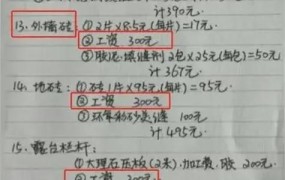 计390元
13. 外墙砖: ① 2片×8.5元(每片)=17元
② 工资 300元
③ 胶泥填缝剂 2包×25元(每包)=50元
计367元
14. 地砖: ① 砖1片×95元(每片)=95元
② 工资 300元
③ 环氧彩砂美缝 100元
计495元
15. 露台栏杆:
① 大理石压板(2米).加工费.胶 200元
② 工资 300元